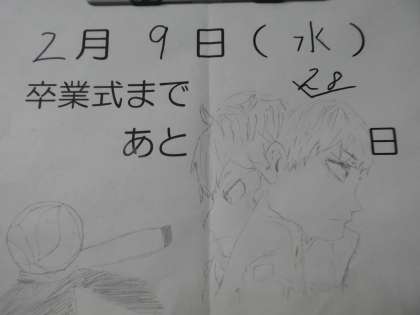 2月9日(水)
28
卒業式まで
あと 日